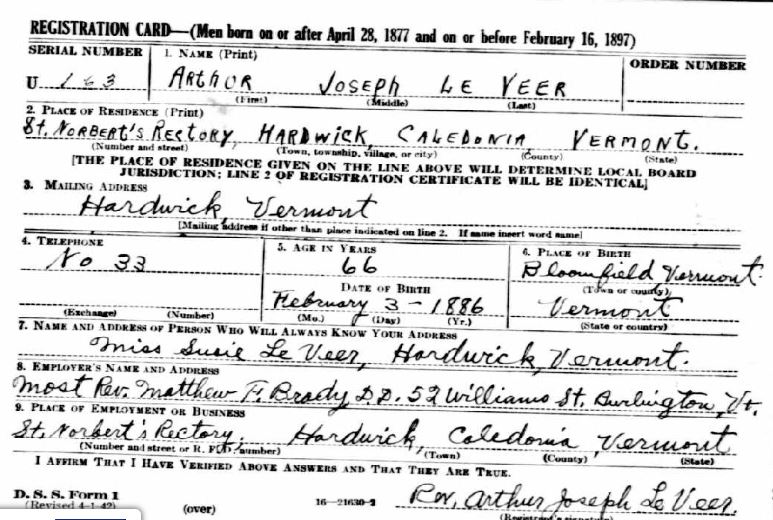 REGISTRATION CARD—(Men born on or after April 28, 1877 and on or before February 16, 1897)
SERIAL NUMBER 1. NAME (Print) ORDER NUMBER
U 163 ARTHUR JOSEPH LE VEER
(First) (Middle) (Last)
2. PLACE OF RESIDENCE (Print)
St. NORBERT'S RECTORY, HARDWICK, CALEDONIA, VERMONT.
(Number and street) (Town, township, village, or city) (County) (State)
[THE PLACE OF RESIDENCE GIVEN ON THE LINE ABOVE WILL DETERMINE LOCAL BOARD
JURISDICTION; LINE 2 OF REGISTRATION CERTIFICATE WILL BE IDENTICAL]
3. MAILING ADDRESS
Hardwick, Vermont
[Mailing address if other than place indicated on line 2. If same insert word same]
4. TELEPHONE 5. AGE IN YEARS 6. PLACE OF BIRTH
No 33 66 Bloomfield Vermont.
DATE OF BIRTH (Town or county)
February 3 - 1886 Vermont
(Exchange) (Number) (Mo.) (Day) (Yr.) (State or country)
7. NAME AND ADDRESS OF PERSON WHO WILL ALWAYS KNOW YOUR ADDRESS
Miss Susie Le Veer, Hardwick, Vermont.
8. EMPLOYER'S NAME AND ADDRESS
Most Rev. Matthew F. Brady D.D. 52 Williams St. Burlington, Vt.
9. PLACE OF EMPLOYMENT OR BUSINESS
St. Norbert's Rectory, Hardwick, Caledonia, Vermont
(Number and street or R. F. D. number) (Town) (County) (State)
I AFFIRM THAT I HAVE VERIFIED ABOVE ANSWERS AND THAT THEY ARE TRUE.
D. S. S. Form 1
(Revised 4-1-42) (over) 16—21630-2 Rev. Arthur Joseph Le Veer.
(Registrant's signature)